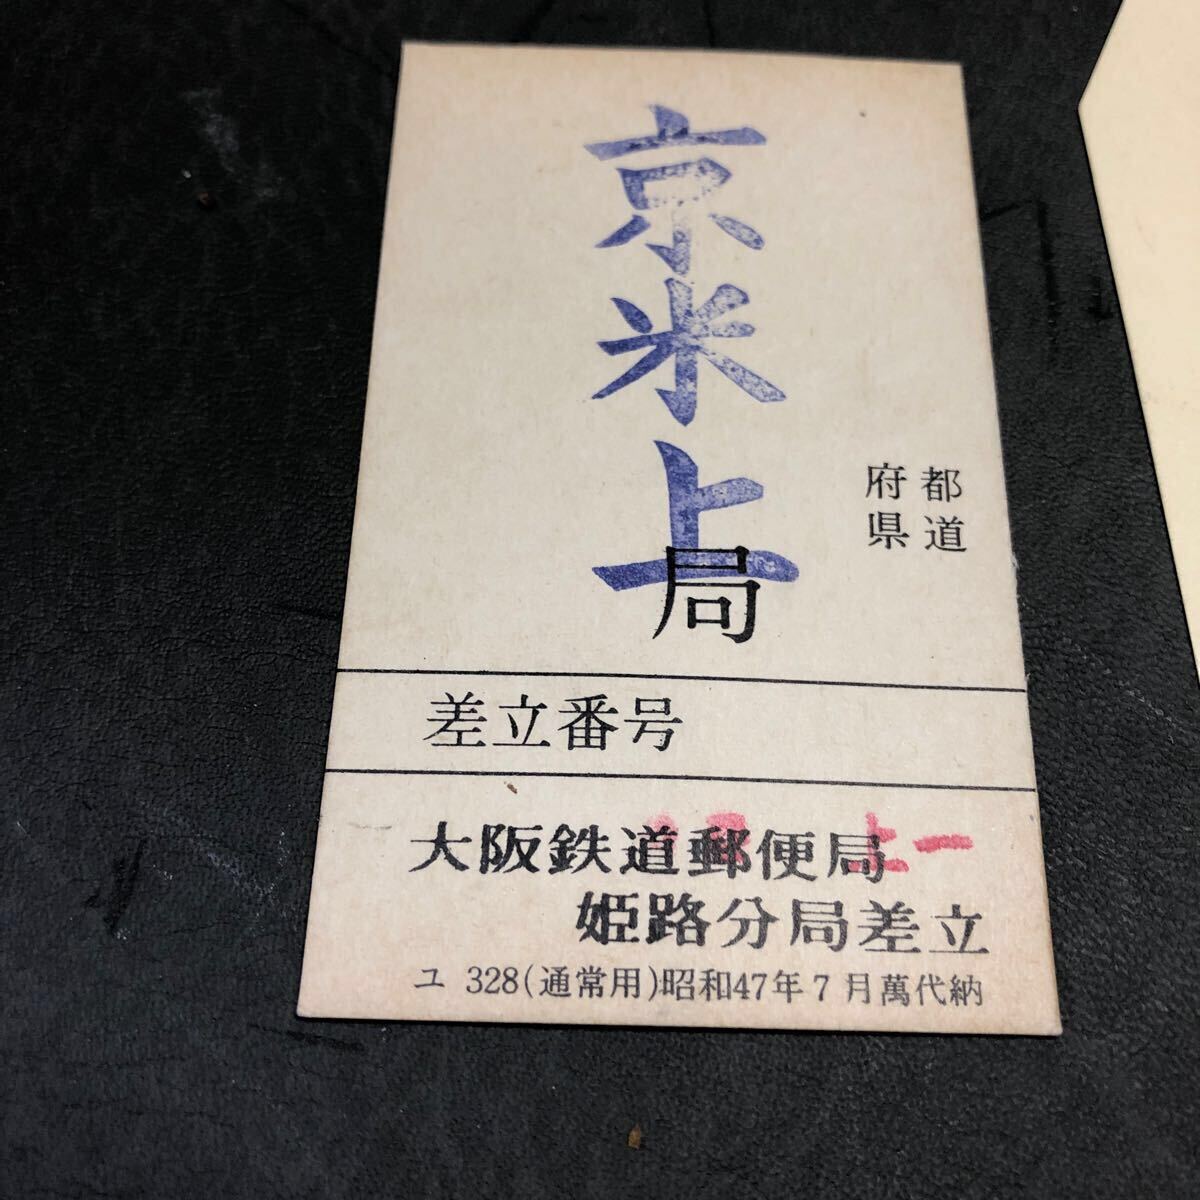 京米上局
都道
府県
差立番号
上一
大阪鉄道郵便局
姫路分局差立
ユ 328(通常用)昭和47年7月萬代納